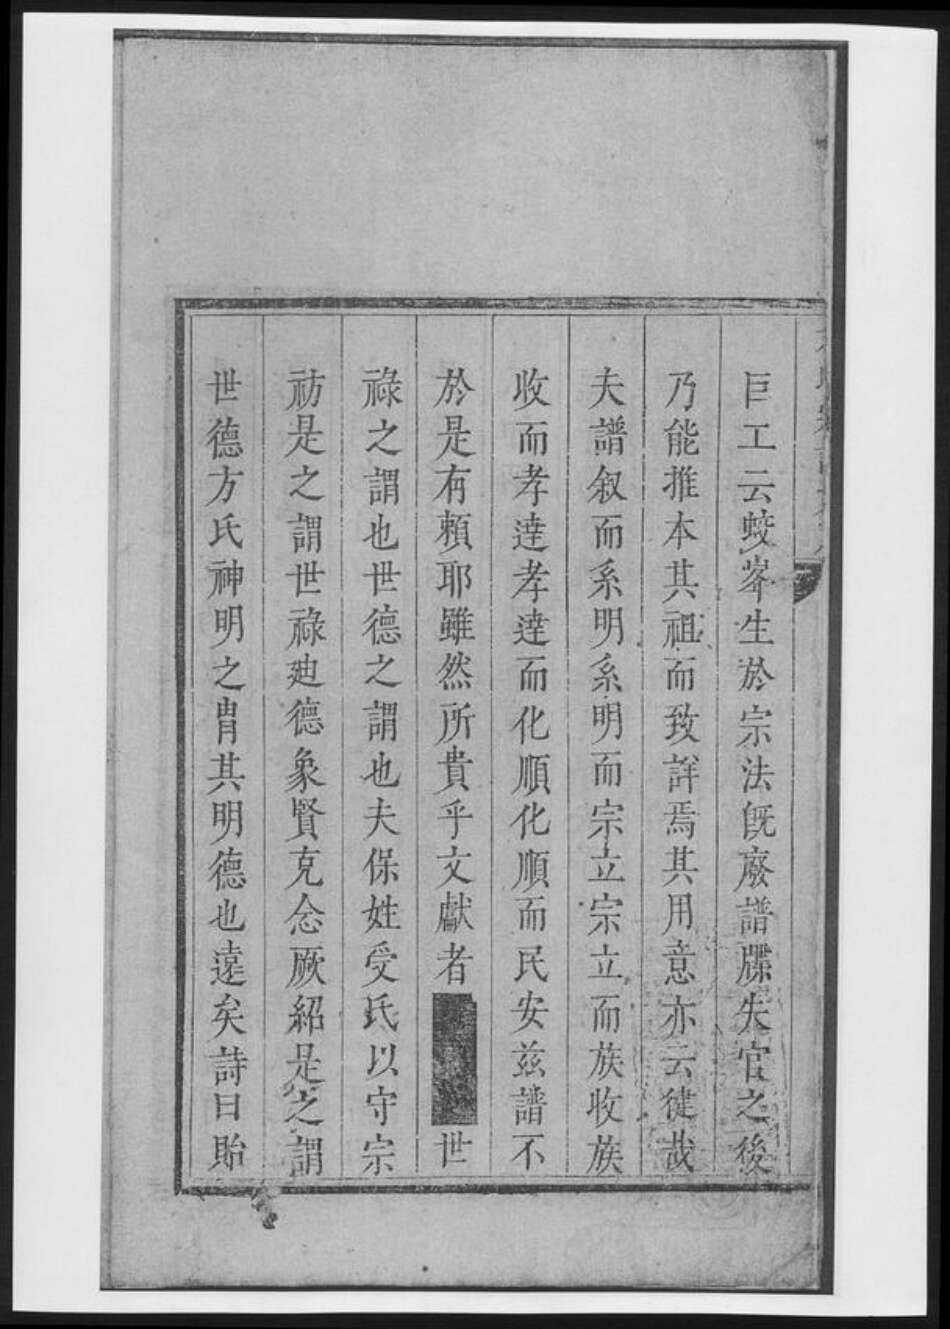 巨工云蛟峯生於宗法旣廢譜牒失官之後
乃能推本其祖而致詳焉其用意亦云徤哉
夫譜叙而系明系明而宗立宗立而族收族
收而孝達孝達而化順化順而民安兹譜不
於是有賴耶雖然所貴乎文獻者 世
祿之謂也世德之謂也夫保姓受氏以守宗
祊是之謂世祿廸德象賢克念厥紹是之謂
世德方氏神明之胄其明德也遠矣詩曰貽